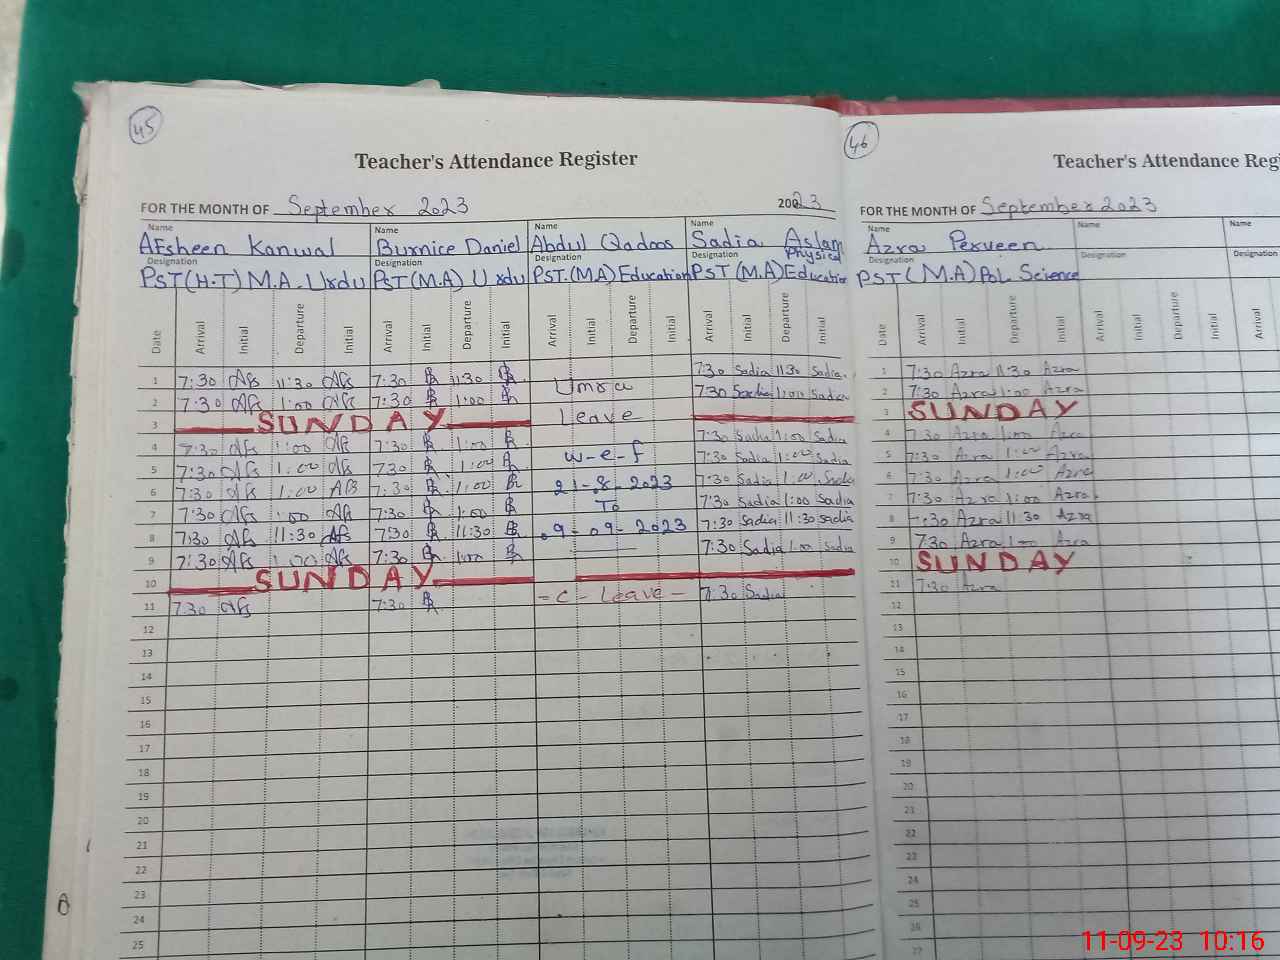 45
Teacher's Attendance Register
FOR THE MONTH OF September 2023 20023
Name Name Name Name
Afsheen Kanwal Burnice Daniel Abdul Qadoos Sadia Aslam
Designation Designation Designation
PST(H.T) M.A. Urdu PST(M.A) Urdu PST.(MA) Education PST (M.A) Physical Education
Date Arrival Initial Departure Initial Arrival Initial Departure Initial Arrival Initial Departure Initial Arrival Initial Departure Initial
1 7:30 Afs 11:30 Afs 7:30 11:30 7:30 Sadia 11:30 Sadia
Umra
2 7:30 Afs 1:00 Afs 7:30 1:00 7:30 Sadia 1:00 Sadia
3 SUNDAY Leave
4 7:30 Afs 1:00 Afs 7:30 1:00 7:30 Sadia 1:00 Sadia
w-e-f
5 7:30 Afs 1:00 Afs 7:30 1:00 7:30 Sadia 1:00 Sadia
6 7:30 Afs 1:00 Afs 7:30 1:00 21-8-2023 7:30 Sadia 1:00 Sadia
7 7:30 Afs 1:00 Afs 7:30 1:00 To 7:30 Sadia 1:00 Sadia
8 7:30 Afs 11:30 Afs 7:30 11:30 09-09-2023 7:30 Sadia 11:30 Sadia
9 7:30 Afs 1:00 Afs 7:30 1:00 7:30 Sadia 1:00 Sadia
10 SUNDAY
11 7:30 Afs 7:30 -C-Leave- 7:30 Sadia
12
13
14
15
16
17
18
19
20
21
22
23
24
25
46
Teacher's Attendance Regi
FOR THE MONTH OF September 2023
Name Name Name
Azra Perveen
Designation Designation Designation
PST (M.A) Pol. Science
Date Arrival Initial Departure Initial Arrival Initial Departure Initial Arrival
1 7:30 Azra 11:30 Azra
2 7:30 Azra 1:00 Azra
3 SUNDAY
4 7:30 Azra 1:00 Azra
5 7:30 Azra 1:00 Azra
6 7:30 Azra 1:00 Azra
7 7:30 Azra 1:00 Azra
8 7:30 Azra 11:30 Azra
9 7:30 Azra 1:00 Azra
10 SUNDAY
11 7:30 Azra
12
13
14
15
16
17
18
19
20
21
22
23
24
25
26
27
11-09-23 10:16